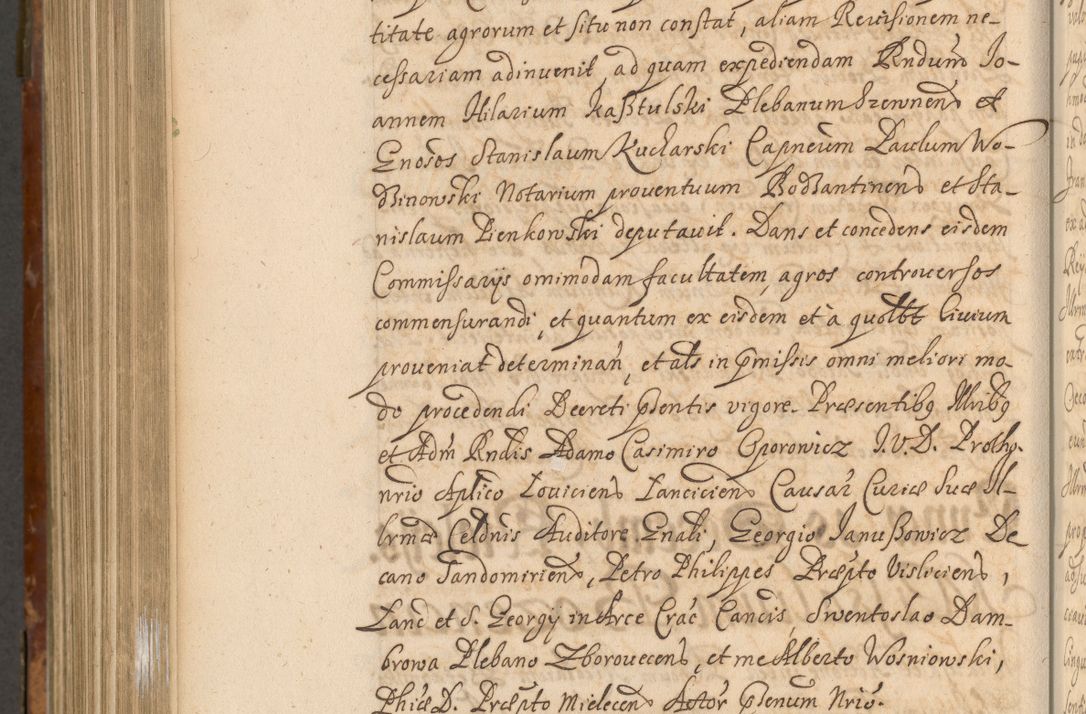 titate agrorum et situ non constat, aliam Revisionem ne-
cessariam adinvenit, ad quam expediendam Rndum Jo-
annem Hilarium Kaßtulski Plebanum Drewnen et
Gnosos Stanislaum Kucharski Capneum Paulum Wo-
dzinowski Notarium proventuum Bodzantinen et Sta-
nislaum Pienkowski deputavit. Dans et concedens eisdem
Commissarijs omnimodam facultatem, agros controversos
commensurandi, et quantum ex eisdem et à quolbt Civium
proveniat determinan, et als in pmissis omni meliori mo-
do procedendi Decreti psentis vigore. Præsentibq Illribq
et Adm Rndis Adamo Casimiro Oporowicz J.V.D. Protho-
nrio Aplico Loviciens Lanciciens Causar Curiæ Suæ Il-
lrmæ Celdnis Auditore Gnali, Georgio Janußowicz De
cano Sandomiriens, Petro Philippes Præpto Visliciens,
Lanc et S. Georgij in Arce Crac Cancis, Swentoslao Dam-
browa Plebano Zborovecens, et me Alberto Wosniowski,
Phiæ D. Præpto Mielecen Actor psenum Nrio.